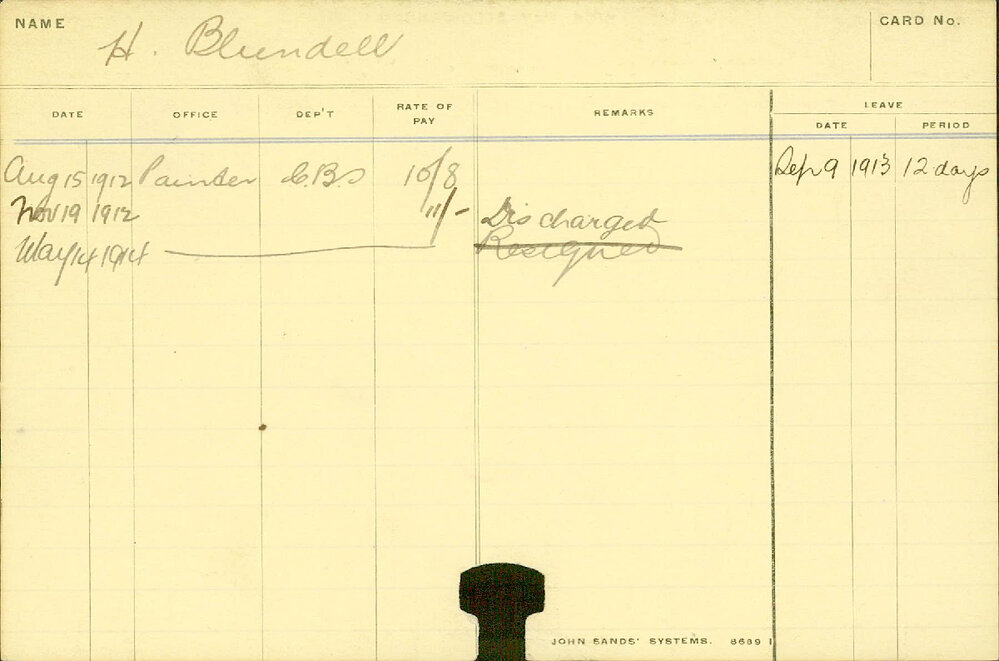 NAME H. Blundell CARD No.
DATE OFFICE DEP'T RATE OF PAY REMARKS LEAVE
DATE PERIOD
Aug 15 1912 Painter C.B.S 10/8 Sep 9 1913 12 days
Nov 19 1912 11/- Discharged
May 14 1914 Resigned
JOHN SANDS' SYSTEMS. 8689